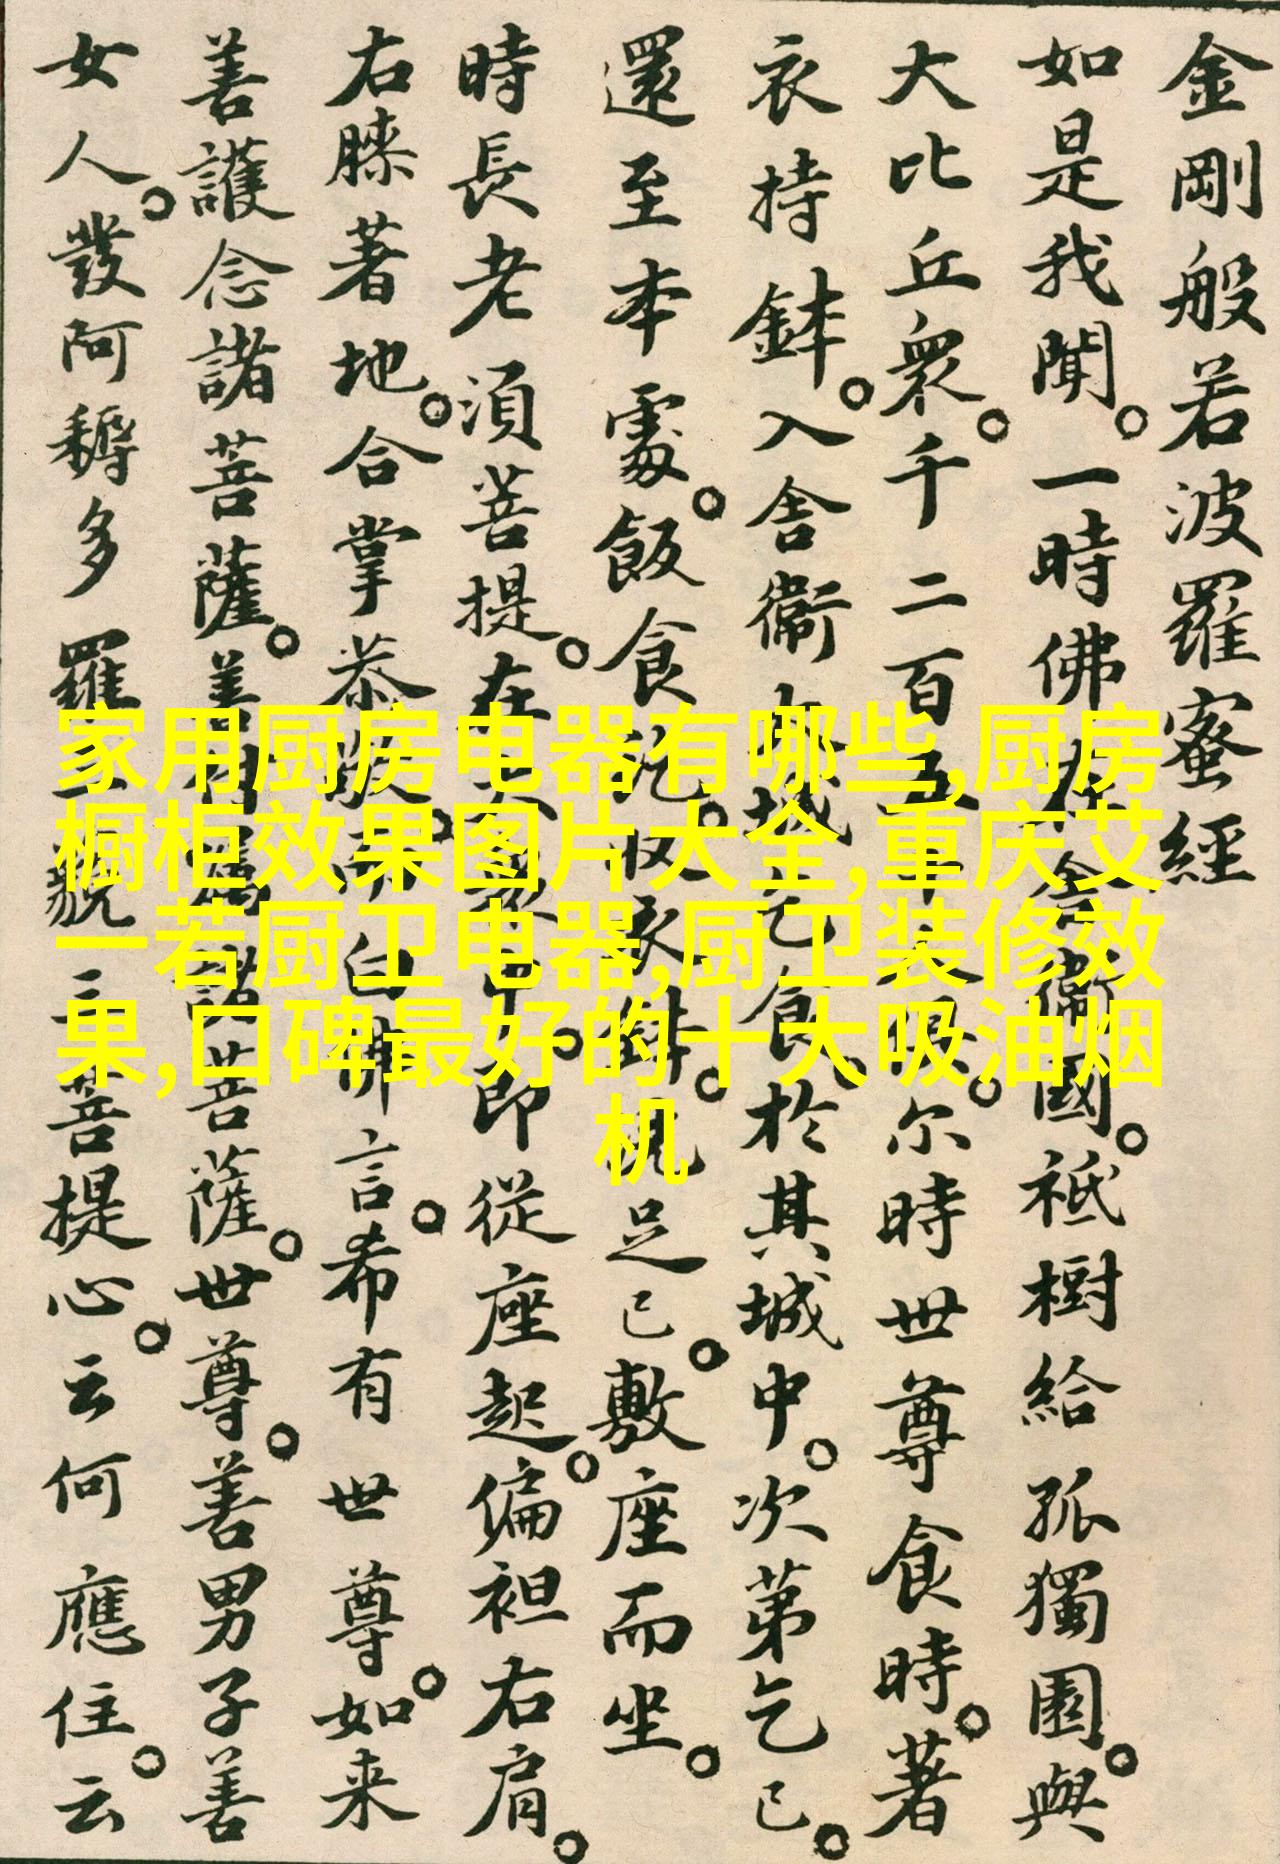 金剛般若波羅蜜經
如是我聞。一時佛在舍衞國。祇樹給孤獨園。與
大比丘衆。千二百五十人俱。尔時世尊食時。著
衣持鉢。入舍衞大城乞食。於其城中。次第乞已。
還至本處。飯食訖。收衣鉢。洗足已。敷座而坐。
時長老須菩提。在大衆中。即從座起。偏袒右肩。
右膝著地。合掌恭敬。而白佛言。希有世尊。如来
善護念諸菩薩。善付囑諸菩薩。世尊。善男子善
女人。發阿耨多羅三藐三菩提心。云何應住。云
家用厨房电器有哪些,厨房
橱柜效果图片大全,重庆艾
一若厨卫电器,厨卫装修效
果,口碑最好的十大吸油烟
机